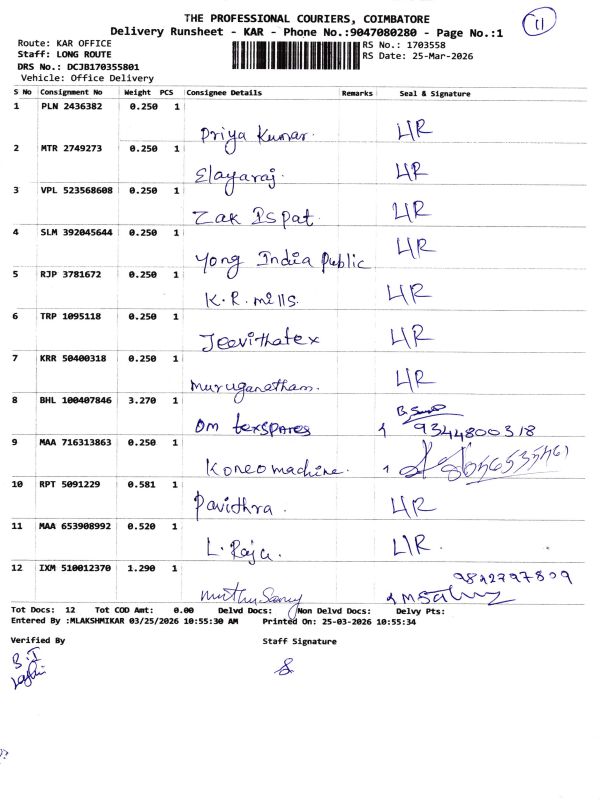 THE PROFESSIONAL COURIERS, COIMBATORE
Delivery Runsheet - KAR - Phone No.:9047080280 - Page No.:1
11
Route: KAR OFFICE
RS No.: 1703558
Staff: LONG ROUTE
RS Date: 25-Mar-2026
DRS No.: DCJB170355801
Vehicle: Office Delivery
S No Consignment No Weight PCS Consignee Details Remarks Seal & Signature
1 PLN 2436382 0.250 1
Priya Kumar. HR
2 MTR 2749273 0.250 1
Elayaraj. HR
3 VPL 523568608 0.250 1
Zak Ispat. HR
4 SLM 392045644 0.250 1
Yong India Public HR
5 RJP 3781672 0.250 1
K.R. mills. HR
6 TRP 1095118 0.250 1
Jeevithatex HR
7 KRR 50400318 0.250 1
Muruganatham. HR
8 BHL 100407846 3.270 1
Om texspares 9344800318
9 MAA 716313863 0.250 1
Koneo machine.
10 RPT 5091229 0.581 1
Pavithra. HR
11 MAA 653908992 0.520 1
L. Raja. HR.
12 IXM 510012370 1.290 1
9842797809
Muthu Samy
Tot Docs: 12 Tot COD Amt: 0.00 Delvd Docs: Non Delvd Docs: Delvy Pts:
Entered By :MLAKSHMIKAR 03/25/2026 10:55:30 AM Printed On: 25-03-2026 10:55:34
Verified By Staff Signature